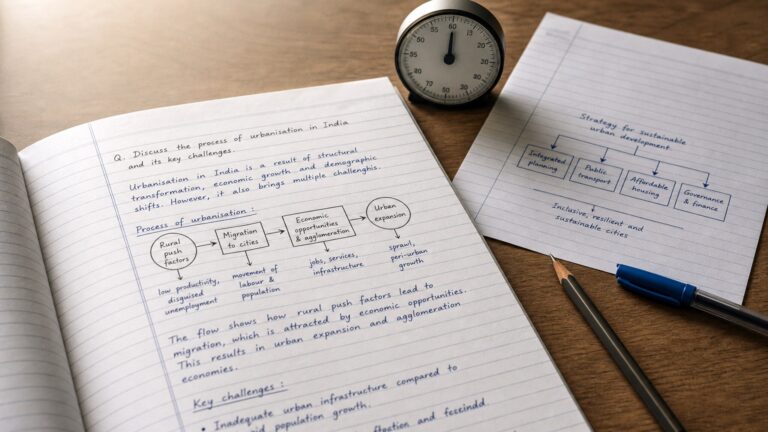 Q. Discuss the process of urbanisation in India
and its key challenges.
Urbanisation in India is a result of structural
transformation, economic growth and demographic
shifts. However, it also brings multiple challenghis.
Process of urbanisation :
Rural
push
factors
Migration
to cities
Economic
opportunities
& agglomeration
Urban
expansion
low productivity,
disguised
unemployment
movement of
labour &
population
jobs, services,
infrastructure
sprawl,
peri-urban
growth
The flow shows how rural push factors lead to
migration, which is attracted by economic opportunities.
This results in urban expansion and agglomeration
economies.
Key challenges :
• Inadequate urban infrastructure compared to
population growth.
and
Strategy for sustainable
urban development
Integrated
planning
Public
transport
Affordable
housing
Governance
& finance
Inclusive, resilient and
sustainable cities
60